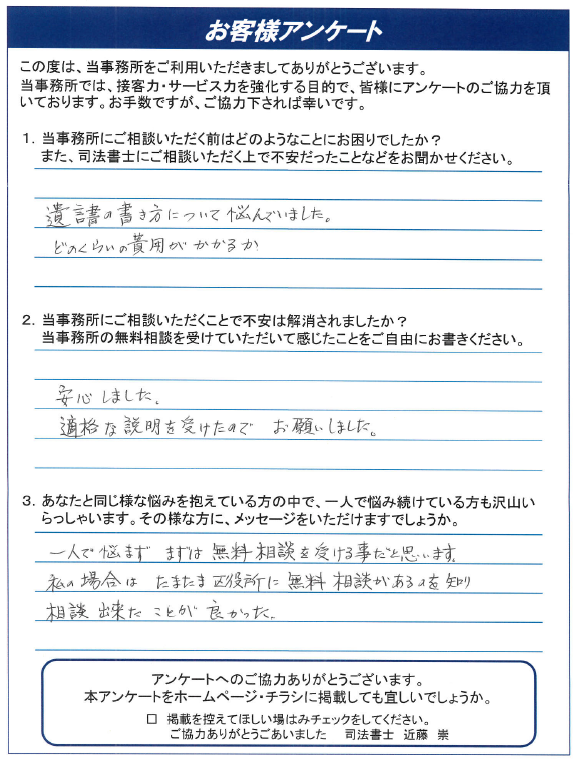 お客様アンケート
この度は、当事務所をご利用いただきましてありがとうございます。
当事務所では、接客力・サービス力を強化する目的で、皆様にアンケートのご協力を頂
いております。お手数ですが、ご協力下されば幸いです。
1．当事務所にご相談いただく前はどのようなことにお困りでしたか？
また、司法書士にご相談いただく上で不安だったことなどをお聞かせください。
遺言書の書き方について悩んでいました。
どのくらいの費用がかかるか
2．当事務所にご相談いただくことで不安は解消されましたか？
当事務所の無料相談を受けていただいて感じたことをご自由にお書きください。
安心しました。
適格な説明を受けたので お願いしました。
3．あなたと同じ様な悩みを抱えている方の中で、一人で悩み続けている方も沢山い
らっしゃいます。その様な方に、メッセージをいただけますでしょうか。
一人で悩まず まずは無料相談を受ける事だと思います。
私の場合は たまたま区役所に無料相談があるのを知り
相談出来たことが良かった。
アンケートへのご協力ありがとうございます。
本アンケートをホームページ・チラシに掲載しても宜しいでしょうか。
□ 掲載を控えてほしい場はみチェックをしてください。
ご協力ありがとうごあいました 司法書士 近藤 崇